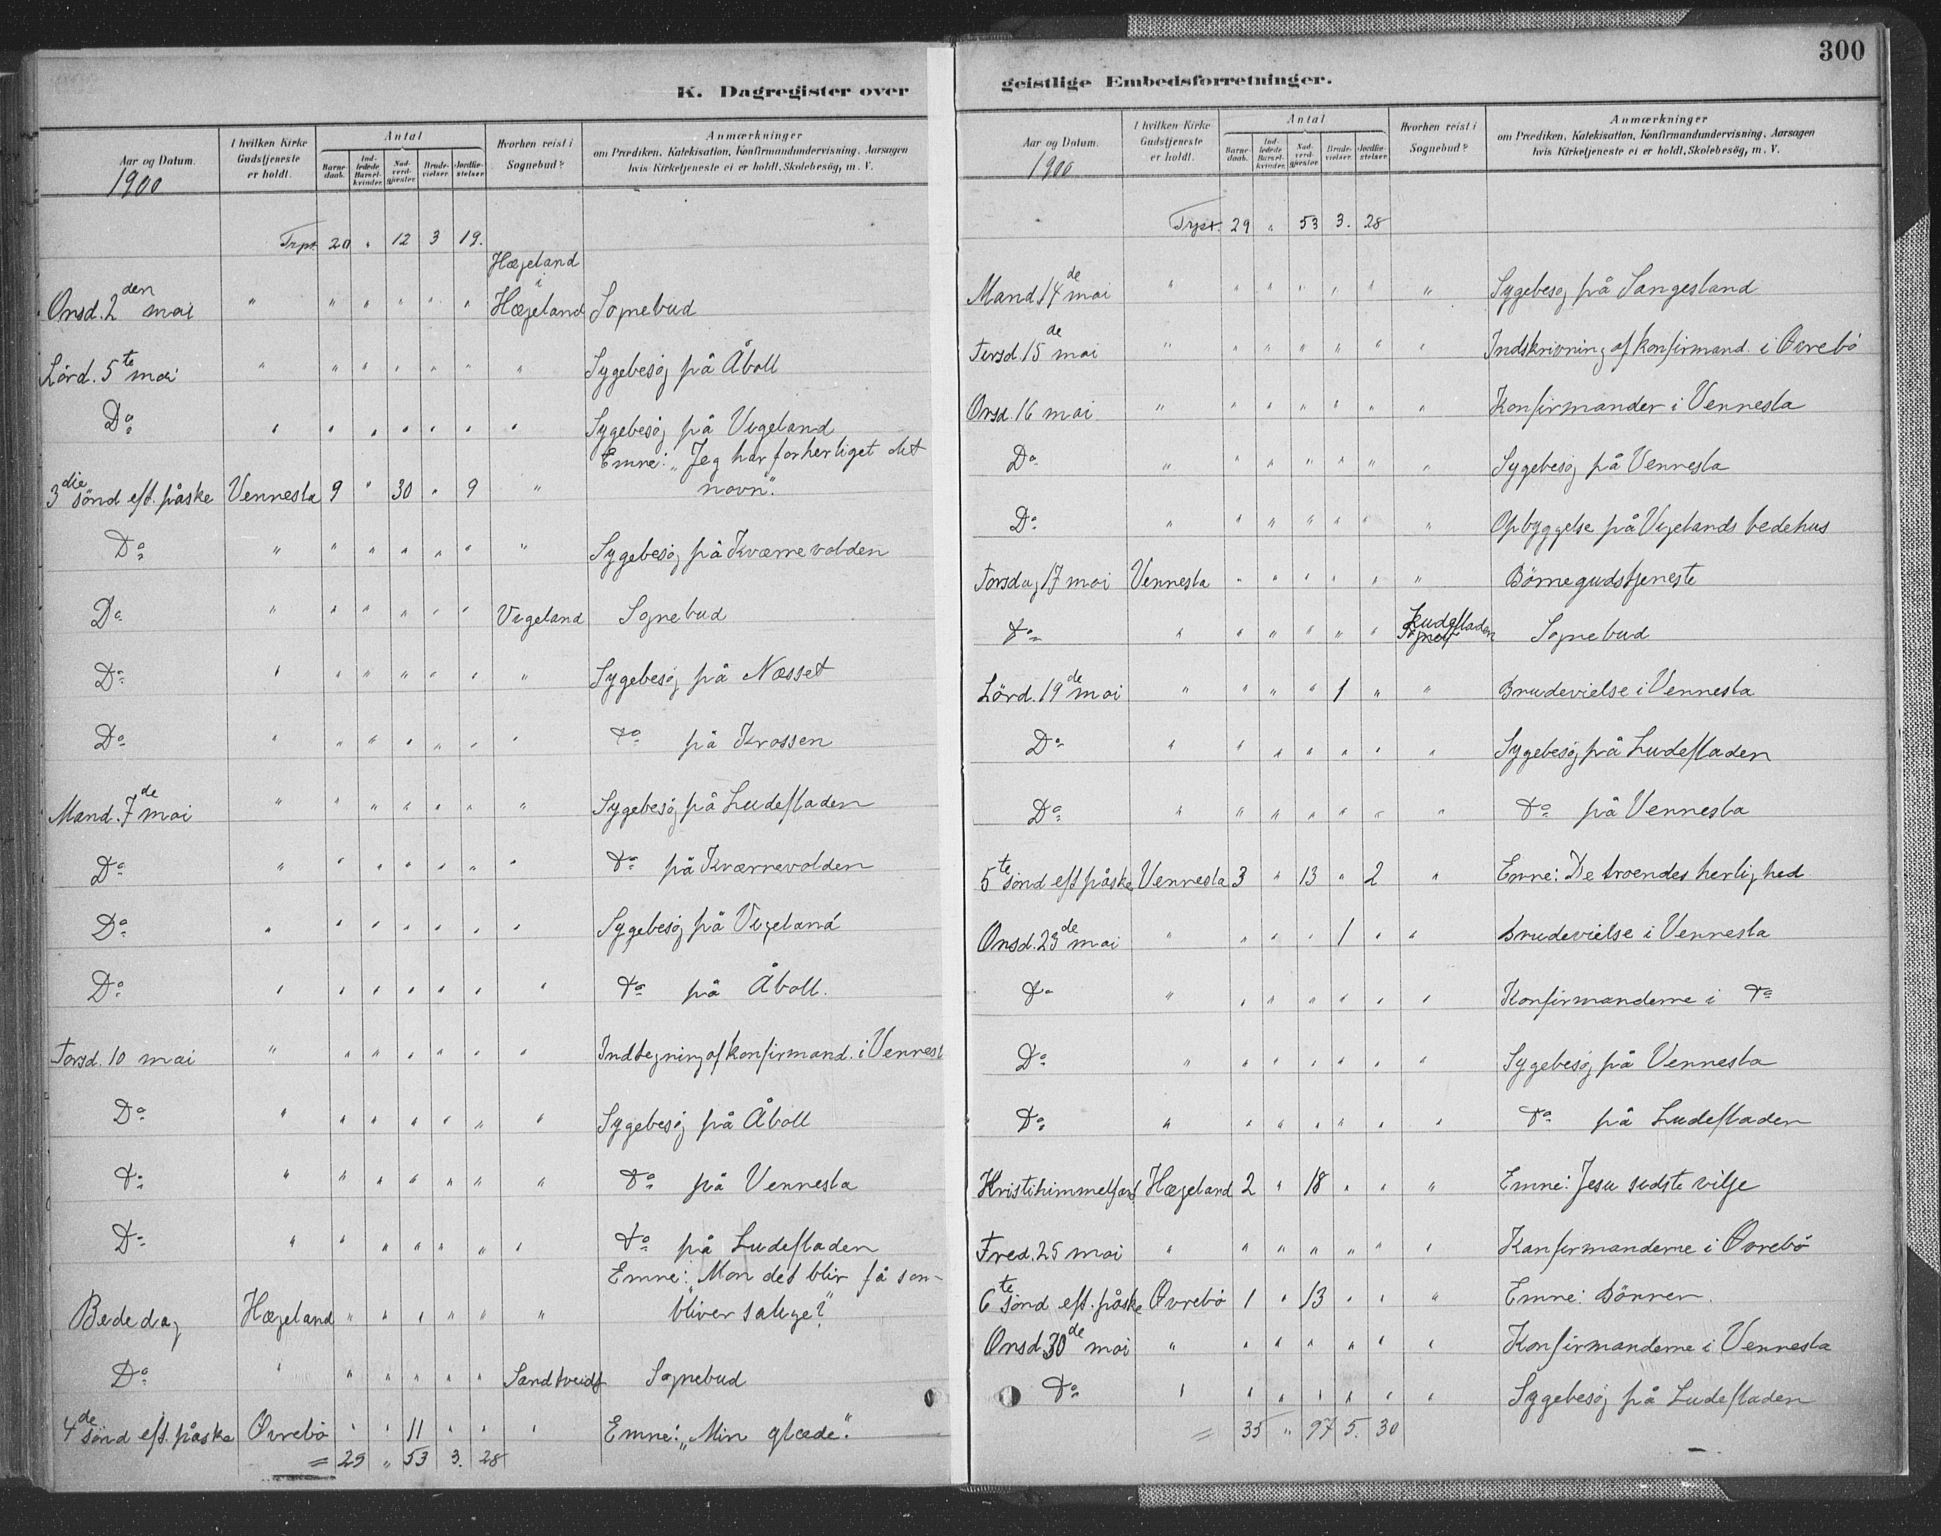 K. Dagregister over
Aar og Datum. | I hvilken Kirke Gudstjeneste er holdt. | Antal: Barne-daab. | Ind-ledede Barsel-kvinder. | Nad-verd-gjæster. | Brude-vielser. | Jordfæ-stelser. | Hvorhen reist i Sognebud? | Anmærkninger om Prædiken, Katekisation, Konfirmandundervisning, Aarsagen hvis Kirketjeneste ei er holdt, Skolebesøg, m. V.
1900
Trpt. 20 " 12 3 19.
Onsd. 2den mai " " " " " " Hægeland i Hægeland Sognebud
Lørd. 5te mai " " " " " " " Sygebesøg på Åboll
Do " " " " " " " Sygebesøg på Vigeland
3die sönd eft. påske Vennesla 9 " 30 " 9 " Emne: "Jeg har forherliget dit navn".
Do " " " " " " " Sygebesøg på Kværnevolden
Do " " " " " " Vigeland Sognebud
Do " " " " " " " Sygebesøg på Næsset
Do " " " " " " " Do på Krossen
Mand. 7de mai " " " " " " " Sygebesøg på Ludefladen
Do " " " " " " " Do på Kværnevolden
Do " " " " " " " Sygebesøg på Vigeland
Do " " " " " " " Do på Åboll.
Torsd. 10 mai " " " " " " " Indtegning af konfirmand. i Vennesl
Do " " " " " " " Sygebesøg på Åboll
Do " " " " " " " Do på Vennesla
Do " " " " " " " Do på Ludefladen
Bededag Hægeland " " " " " " Emne: "Mon det blir få som bliver salige?"
Do " " " " " " Sandtveidt Sognebud
4de sönd eft. påske Øvrebø " " 11 " " " Emne: "Min glæde".
= 29 " 53 3. 28
300
geistlige Embedsforretninger.
Aar og Datum. | I hvilken Kirke Gudstjeneste er holdt. | Antal: Barne-daab. | Ind-ledede Barsel-kvinder. | Nad-verd-gjæster. | Brude-vielser. | Jordfæ-stelser. | Hvorhen reist i Sognebud? | Anmærkninger om Prædiken, Katekisation, Konfirmandundervisning, Aarsagen hvis Kirketjeneste ei er holdt, Skolebesøg, m. V.
1900
Trpt. 29 " 53 3. 28
Mand. 14de mai " " " " " " " Sygebesøg på Sangesland
Tirsd. 15de mai " " " " " " " Indskrivning af konfirmand i Øvrebö
Onsd. 16 mai " " " " " " " Konfirmander i Vennesla
Do " " " " " " " Sygebesøg på Vennesla
Do " " " " " " " Opbyggelse på Vigelands bedehus
Torsdag 17 mai Vennesla " " " " " " Börnegudstjeneste
Do " " " " " " Ludefladen Sognebud
Lörd. 19de mai " " " " 1 " " Brudevielse i Vennesla
Do " " " " " " " Sygebesøg på Ludefladen
Do " " " " " " " Do på Vennesla
5te sönd eft påske Vennesla 3 " 13 " 2 " Emne: De troendes herlighed
Onsd. 23de mai " " " " 1 " " Brudevielse i Vennesla
Do " " " " " " " Konfirmanderne i Do
Do " " " " " " " Sygebesøg på Vennesla
Do " " " " " " " Do på Ludefladen
Kristihimmelfart Hægeland 2 " 18 " " " Emne: Jesu sidste vilje
Fred. 25 mai " " " " " " " Konfirmanderne i Øvrebö
6te sönd eft. påske Øvrebö 1 " 13 " " " Emne: Bönnen.
Onsd. 30de mai " " " " " " " Konfirmanderne i Vennesla
Do " " " " " " " Sygebesøg på Ludefladen
= 35 " 97 5. 30